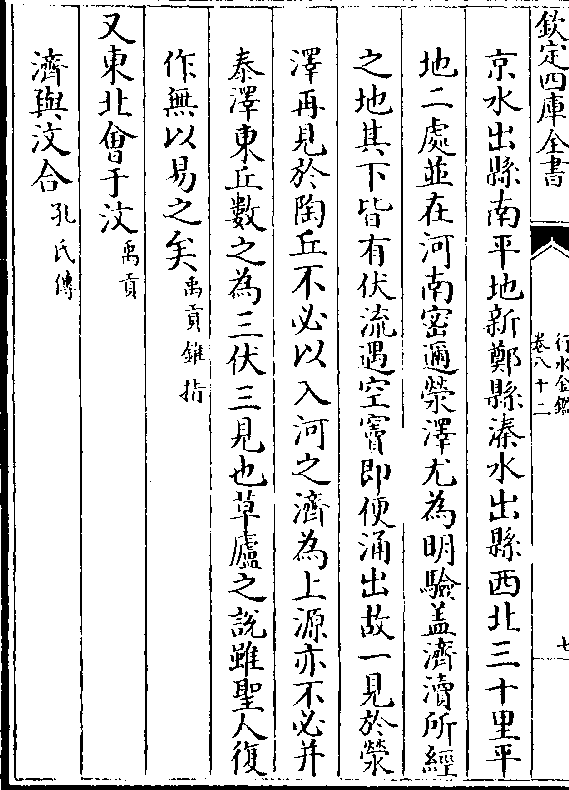 欽定四庫全書
行水金鑑
卷八十二
七
京水出縣南平地新鄭縣溱水出縣西北三十里平
地二處並在河南密邇滎澤尤為明驗盖濟瀆所經
之地其下皆有伏流遇空竇即便涌出故一見於滎
澤再見於陶丘不必以入河之濟為上源亦不必并
泰澤東丘數之為三伏三見也草廬之說雖聖人復
作無以易之矣禹貢錐指
又東北會于汶禹貢
濟與汶合孔氏傳